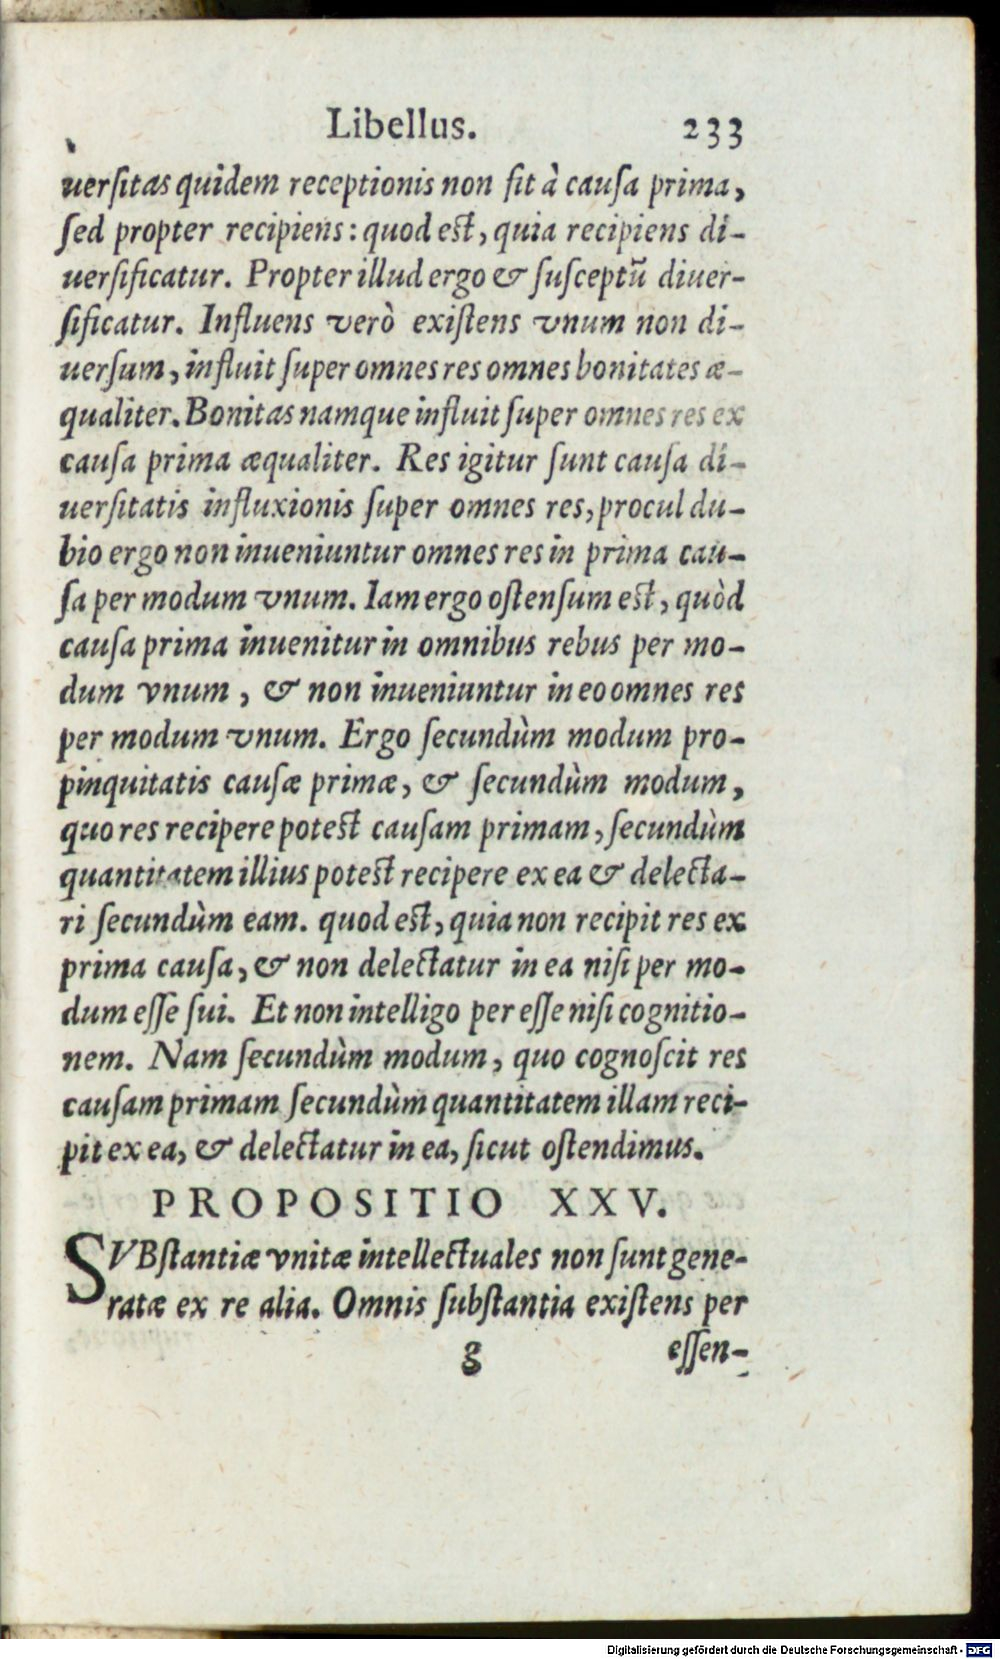 Libellus. 233
uerſitas quidem receptionis non fit à cauſa prima,
ſed propter recipiens: quod est, quia recipiens di-
uerſificatur. Propter illud ergo & ſuſceptū diuer-
ſificatur. Influens verò exiſtens vnum non di-
uerſum, influit ſuper omnes res omnes bonitates æ-
qualiter. Bonitas namque influit ſuper omnes res ex
cauſa prima æqualiter. Res igitur ſunt cauſa di-
uerſitatis influxionis ſuper omnes res, procul du-
bio ergo non inueniuntur omnes res in prima cau-
ſa per modum vnum. Iam ergo oſtenſum est, quòd
cauſa prima inuenitur in omnibus rebus per mo-
dum vnum, & non inueniuntur in eo omnes res
per modum vnum. Ergo ſecundùm modum pro-
pinquitatis cauſæ primæ, & ſecundùm modum,
quo res recipere potest cauſam primam, ſecundùm
quantitatem illius potest recipere ex ea & delecta-
ri ſecundùm eam. quod est, quia non recipit res ex
prima cauſa, & non delectatur in ea niſi per mo-
dum eſſe ſui. Et non intelligo per eſſe niſi cognitio-
nem. Nam ſecundùm modum, quo cognoſcit res
cauſam primam ſecundùm quantitatem illam reci-
pit ex ea, & delectatur in ea, ſicut oſtendimus.
PROPOSITIO XXV.
SVBſtantiæ vnitæ intellectuales non ſunt gene-
ratæ ex re alia. Omnis ſubſtantia exiſtens per
g eſſen-
Digitalisierung gefördert durch die Deutsche Forschungsgemeinschaft - DFG